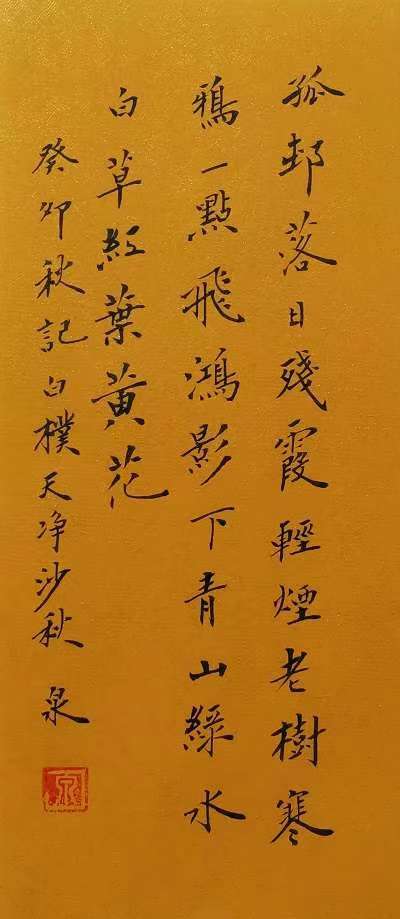 孤邨落日殘霞輕煙老樹寒
鴉一點飛鴻影下青山綠水
白草紅葉黃花
癸卯秋記白樸天净沙秋 泉